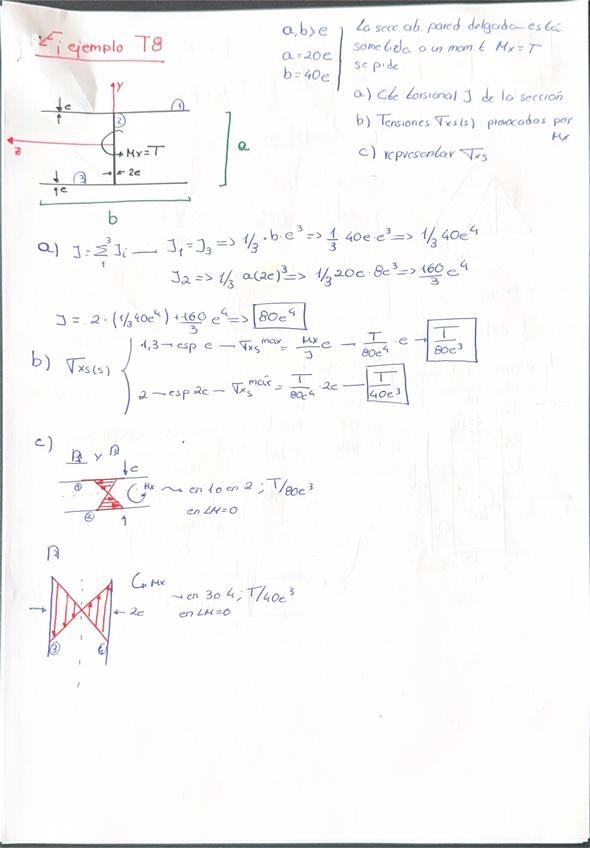 Ej ejemplo T8
a,b>e
a=20e
b=40e
La secc. ab. pared delgada está
sometida a un mom.t Mx=T
se pide
a) Cte torsional J de la sección
b) Tensiones τxs(s) provocadas por Mx
c) representar τxs
e
1
Y
2
Mx=T
z
2e
3
e
a
b
a) J=Σ³₁Ji — J₁=J₃ => 1/3·b·e³ => 1/3 40e·e³ => 1/3 40e⁴
J₂ => 1/3 a(2e)³ => 1/3 20e·8e³ => 160/3 e⁴
J = 2·(1/3 40e⁴)+160/3 e⁴ => 80e⁴
b) τxs(s)
1,3→esp e — τxs max = Mx/J e → T/80e⁴ ·e → T/80e³
2→esp 2e — τxs máx = T/80e⁴ ·2e — T/40e³
c)
y
e
1
Mx
en 1 o en 2; T/80e³
2
1
en LM=0
Mx
en 3 o 4; T/40e³
2e
en LM=0
3